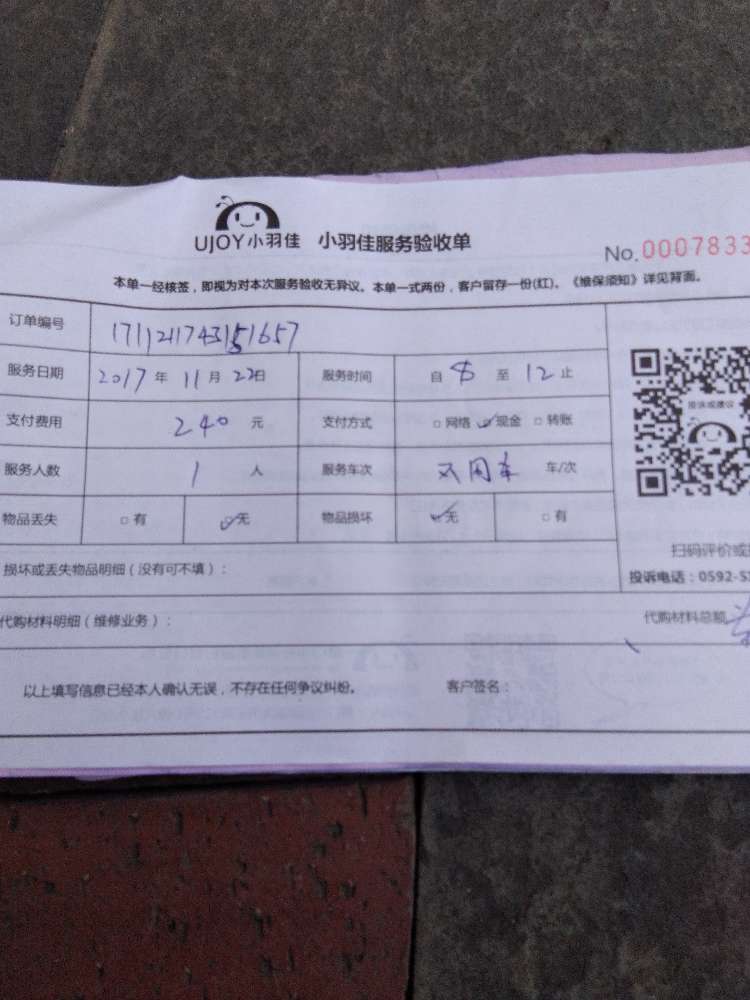 UJOY小羽佳 小羽佳服务验收单
No.0007833
本单一经核签，即视为对本次服务验收无异议。本单一式两份，客户留存一份(红)。《维保须知》详见背面。
订单编号
服务日期 2017 年 11 月 22日 服务时间 自 8 至 12 止
投诉或建议
支付费用 240 元 支付方式 □网络 ☑现金 □转账
服务人数 1 人 服务车次 不用车 车/次
物品丢失 □有 ☑无 物品损坏 ☑无 □有
扫码评价或
损坏或丢失物品明细（没有可不填）：
投诉电话：0592-5
代购材料明细（维修业务）： 代购材料总额
以上填写信息已经本人确认无误，不存在任何争议纠纷。 客户签名：